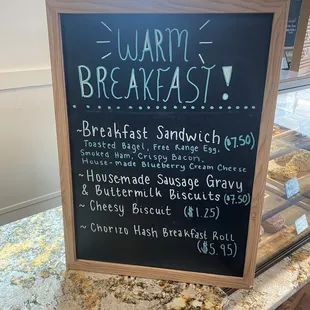 WARM
BREAKFAST!
~Breakfast Sandwich ($7.50)
Toasted Bagel, Free Range Egg,
Smoked Ham, Crispy Bacon,
House-made Blueberry Cream Cheese
~Housemade Sausage Gravy
& Buttermilk Biscuits ($7.50)
~ Cheesy Biscuit ($1.25)
~ Chorizo Hash Breakfast Roll
($5.95)